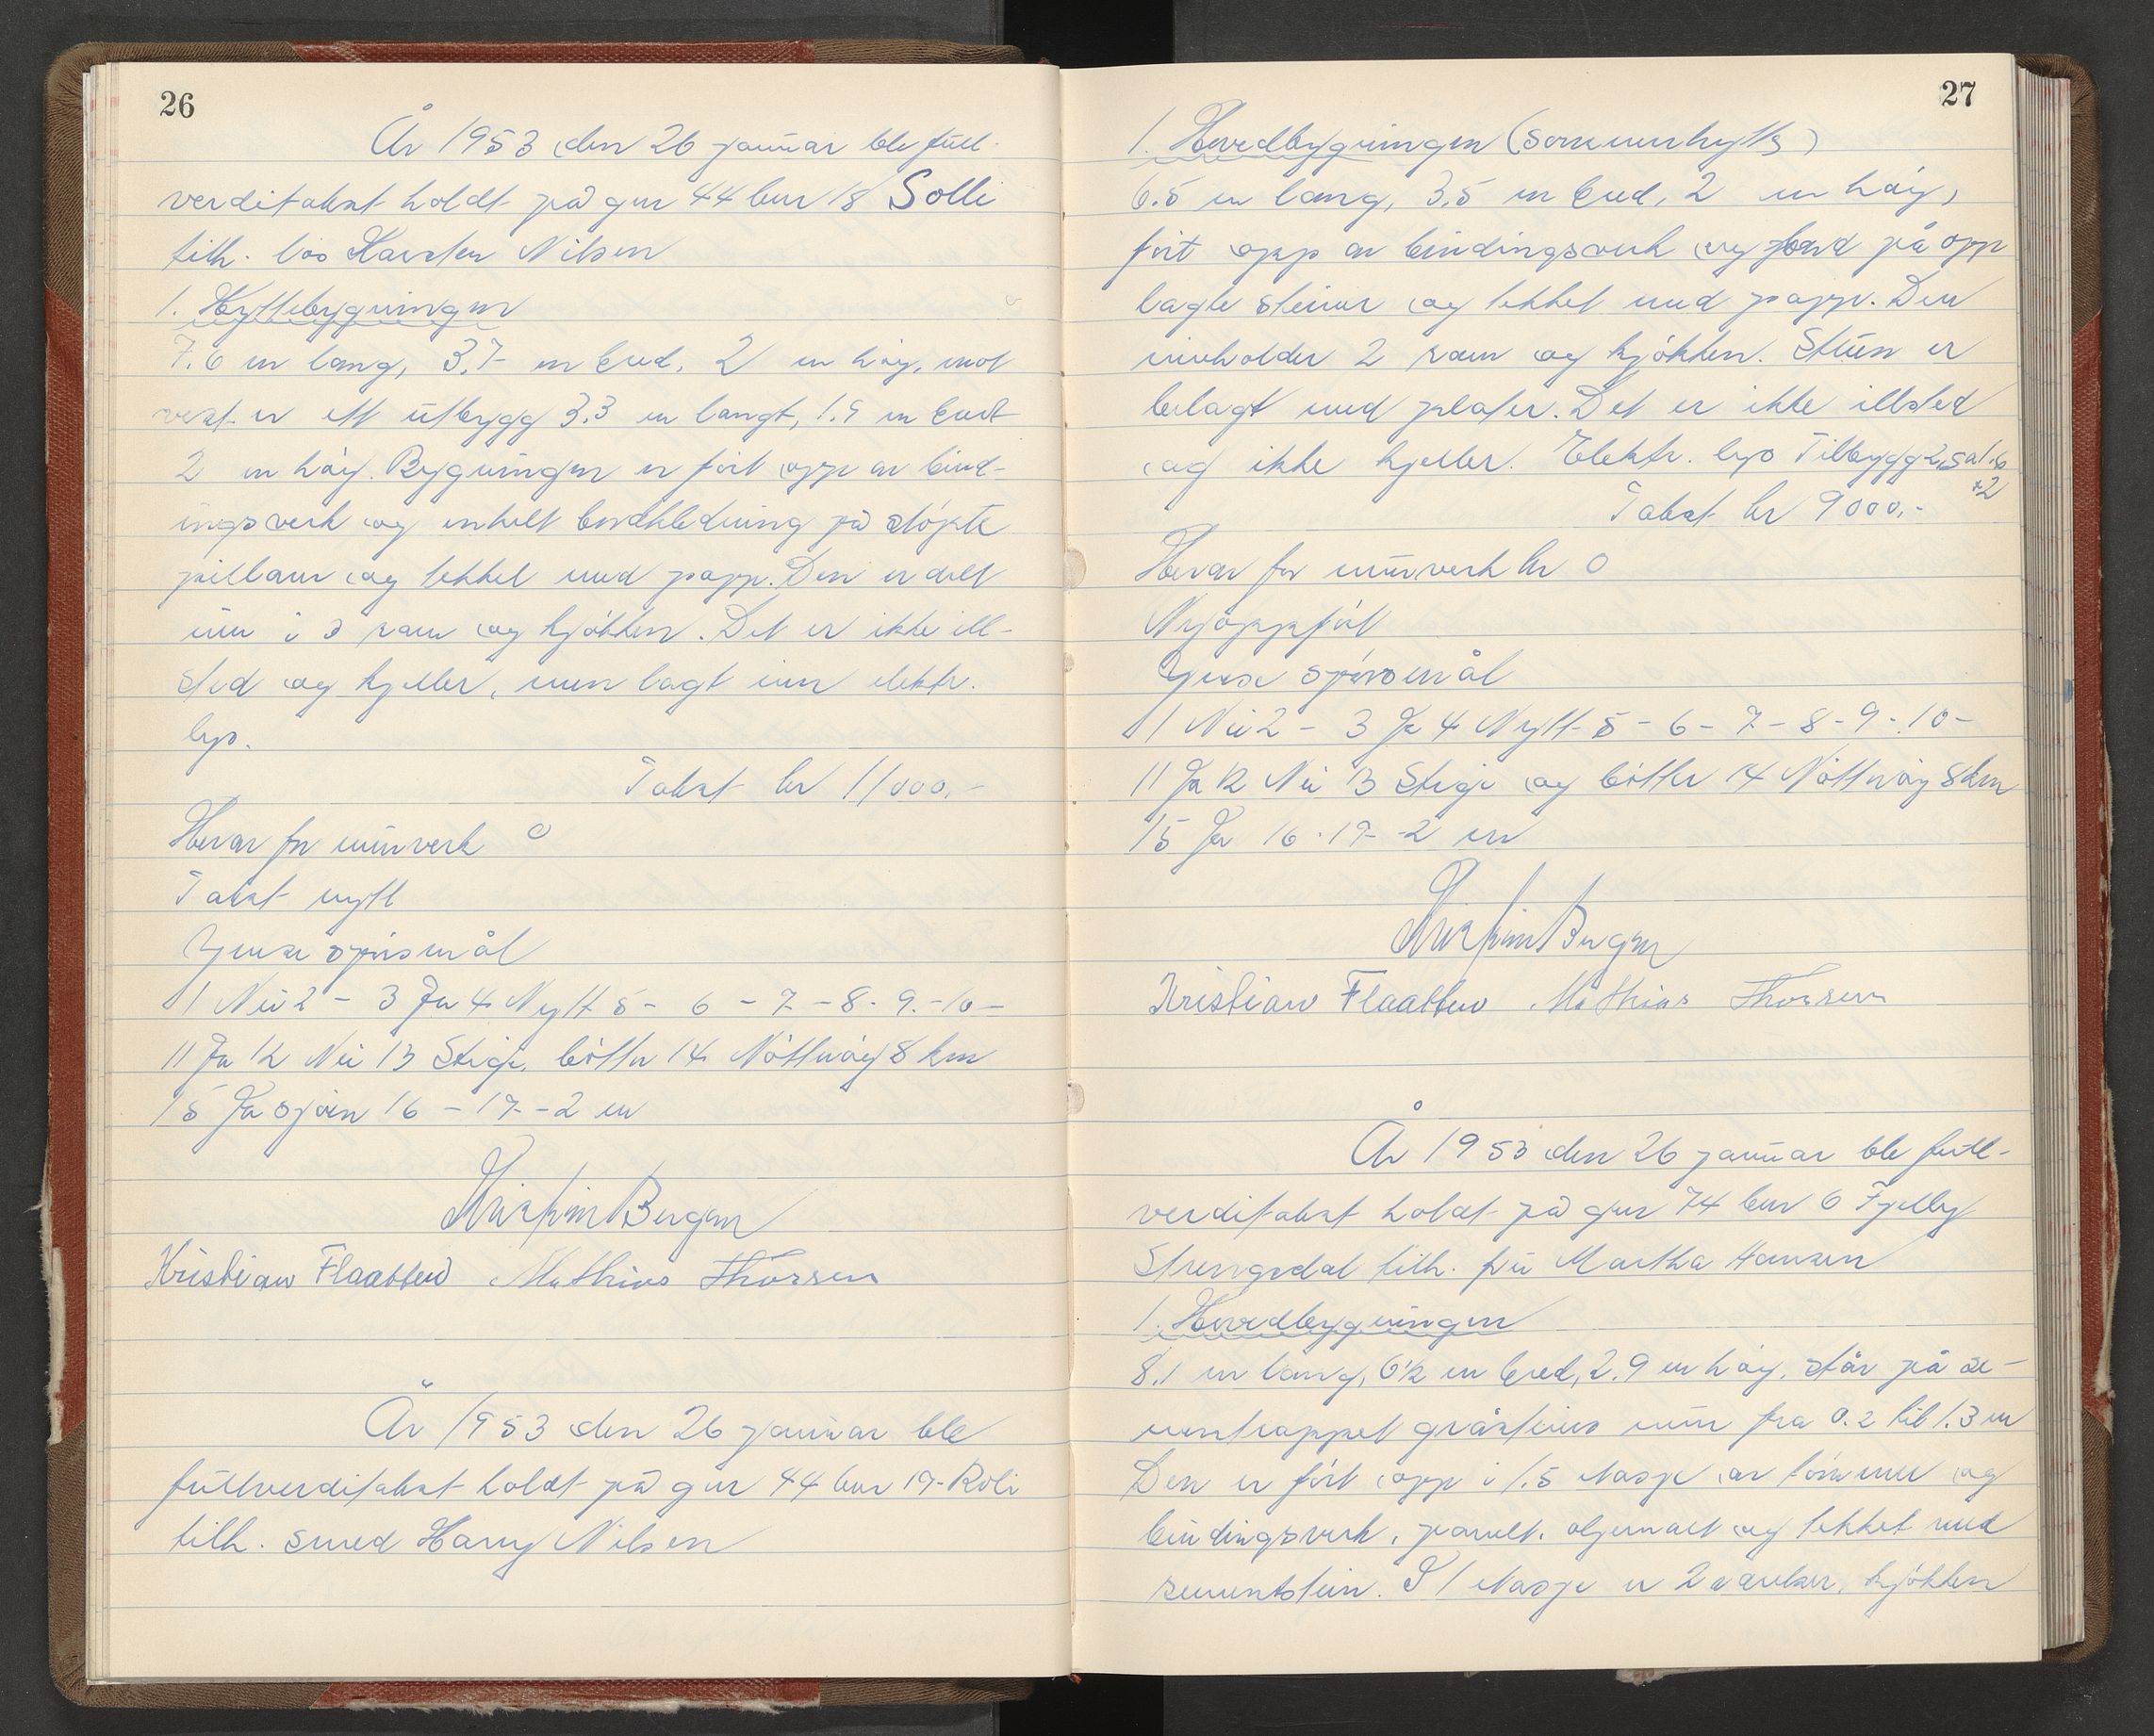 26
År 1953 den 26 januar ble full-
verditakst holdt på gnr 44 bnr 18 Solli
tilh. los Karsten Nilsen
1. Hyttebygningen
7.6 m lang, 3.7 m bred, 2 m høy, mot
vest er ett utbygg 3.3 m langt, 1.9 m bredt
2 m høy. Bygningen er ført opp av bind-
ingsverk og enkelt bordkledning på støpte
pillarer og tekket med papp. Den er delt
inn i 3 rom og kjøkken. Det er ikke ill-
sted og kjeller, men lagt inn elektr.
lys.
Takst kr 11000,-
Herav for murverk 0
Takst nytt
Ymse spørsmål
1 Nei 2 - 3 Ja 4 Nytt 5 - 6 - 7 - 8 - 9 - 10 -
11 Ja 12 Nei 13 Stige, bøtter 14 Nøtterøy 8 km
15 Ja sjøen 16 - 17 - 2 m
Kristian Bergan
Kristian Flaatten Mathias Thorsen
År 1953 den 26 januar ble
fullverditakst holdt på gnr 44 bnr 19 Roli
tilh. smed Harry Nilsen
27
1. Hovedbygningen (sommerhytte)
6.5 m lang, 3,5 m bred, 2 m høy,
ført opp av bindingsverk og panel på opp
lagte steiner og tekket med papp. Den
inneholder 2 rom og kjøkken. Stuen er
belagt med plater. Det er ikke illsted
og ikke kjeller. Elektr. lys Tilbygg 2,5 x 1.6
x 2
Takst kr 9000.-
Herav for murverk kr 0
Nyoppført
Ymse spørsmål
1 Nei 2 - 3 Ja 4 Nytt 5 - 6 - 7 - 8 - 9 - 10 -
11 Ja 12 Nei 13 Stige og bøtter 14 Nøtterøy 8 km
15 Ja 16 - 17 - 2 m
Kristian Bergan
Kristian Flaatten Mathias Thorsen
År 1953 den 26 januar ble full-
verditakst holdt på gnr 74 bnr 6 Fjelly
Strengsdal tilh. fru Martha Hansen
1. Hovedbygningen
8.1 m lang, 6½ m bred, 2.9 m høy, står på se-
mentrappet gråsteins mur fra 0.2 til 1.3 m
Den er ført opp i 1.5 etasje av tømmer og
bindingsverk, panelt, oljemalt og tekket med
sementstein. I 1 etasje er 2 værelser, kjøkken